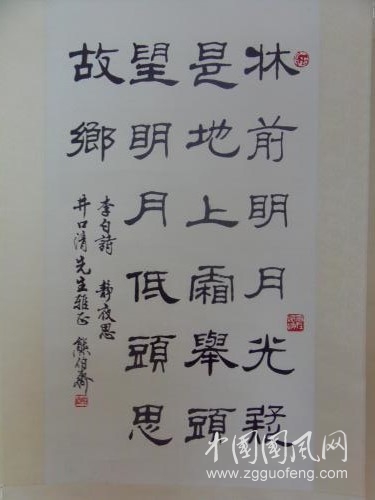 牀前明月光疑
是地上霜舉頭
望明月低頭思
故鄉
李白詩 靜夜思
井口清先生雅正 熊伯齊
中国国风网
www.zgguofeng.com